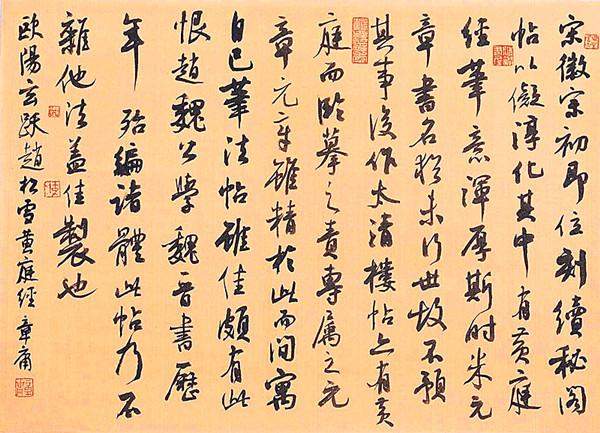 宋徽宗初即位刻續秘阁
帖以儗淳化其中有黄庭
經筆意渾厚斯时米元
章書名猶未行世故不預
其事後作太清樓帖亦有黄
庭而臨摹之責專属之元
章元章雖精於此而间寓
自己筆法帖雖佳頗有此
恨趙魏公學魏晋書歷
年殆編诸體此帖乃不
雜他法盖佳製也
欧陽玄跋趙松雪黄庭經章庸